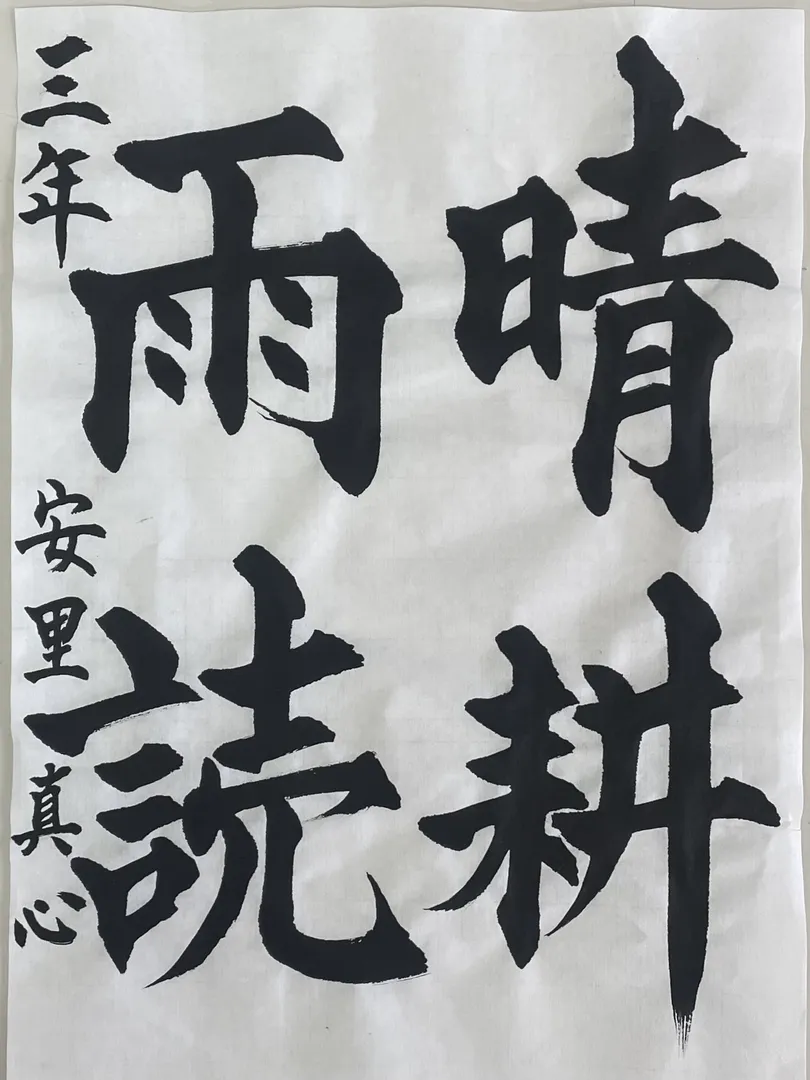 晴耕
雨読
三年 安里真心